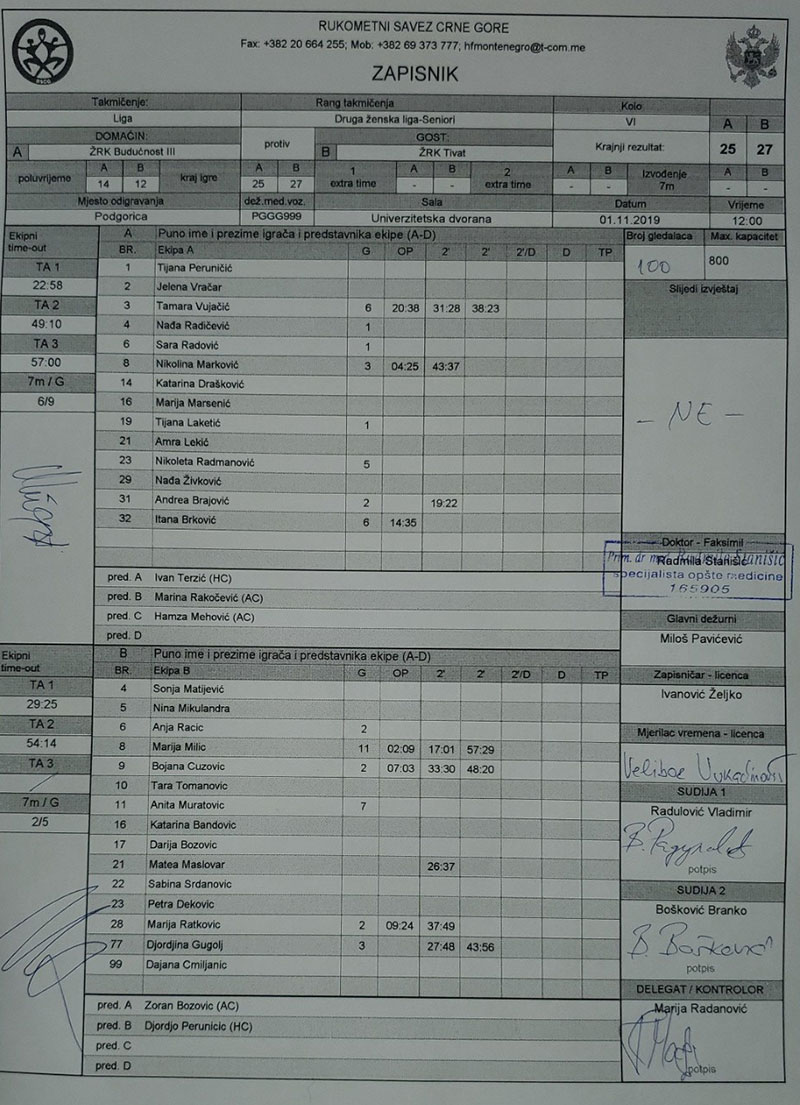 RUKOMETNI SAVEZ CRNE GORE
Fax: +382 20 664 255; Mob: +382 69 373 777; hfmontenegro@t-com.me
ZAPISNIK
Takmičenje: Rang takmičenja Kolo A B
Liga Druga ženska liga-Seniori VI
DOMAĆIN: protiv GOST: Krajnji rezultat: 25 27
A ŽRK Budućnost III B ŽRK Tivat
poluvrijeme A B kraj igre A B 1 extra time A B 2 extra time A B Izvođenje 7m A B
14 12 25 27 - - - - - -
Mjesto odigravanja dež.med.voz. Sala Datum Vrijeme
Podgorica PGGG999 Univerzitetska dvorana 01.11.2019 12:00
Ekipni time-out A Puno ime i prezime igrača i predstavnika ekipe (A-D) Broj gledalaca Max. kapacitet
BR. Ekipa A G OP 2' 2' 2'/D D TP 100 800
TA 1 1 Tijana Peruničić
22:58 2 Jelena Vračar Slijedi izvještaj
TA 2 3 Tamara Vujačić 6 20:38 31:28 38:23
49:10 4 Nađa Radičević 1
TA 3 6 Sara Radović 1
57:00 8 Nikolina Marković 3 04:25 43:37
7m / G 14 Katarina Drašković
6/9 16 Marija Marsenić
19 Tijana Laketić 1 - NE -
21 Amra Lekić
23 Nikoleta Radmanović 5
29 Nađa Živković
31 Andrea Brajović 2 19:22
32 Itana Brković 6 14:35
Doktor - Faksimil
Prim. dr med. Radmila Stanišić
Radmila Stanišić
specijalista opšte medicine
165905
pred. A Ivan Terzić (HC)
pred. B Marina Rakočević (AC)
pred. C Hamza Mehović (AC) Glavni dežurni
pred. D Miloš Pavićević
Ekipni time-out B Puno ime i prezime igrača i predstavnika ekipe (A-D)
BR. Ekipa B G OP 2' 2' 2'/D D TP Zapisničar - licenca
TA 1 4 Sonja Matijević Ivanović Željko
29:25 5 Nina Mikulandra
TA 2 6 Anja Racic 2 Mjerilac vremena - licenca
54:14 8 Marija Milic 11 02:09 17:01 57:29
TA 3 9 Bojana Cuzovic 2 07:03 33:30 48:20
10 Tara Tomanovic SUDIJA 1
7m / G 11 Anita Muratovic 7 Radulović Vladimir
2/5 16 Katarina Bandovic
17 Darija Bozovic
21 Matea Maslovar 26:37 potpis
22 Sabina Srdanovic SUDIJA 2
23 Petra Dekovic Bošković Branko
28 Marija Ratkovic 2 09:24 37:49
77 Djordjina Gugolj 3 27:48 43:56
99 Dajana Cmiljanic potpis
DELEGAT / KONTROLOR
pred. A Zoran Bozovic (AC) Marija Radanović
pred. B Djordjo Perunicic (HC)
pred. C
pred. D potpis